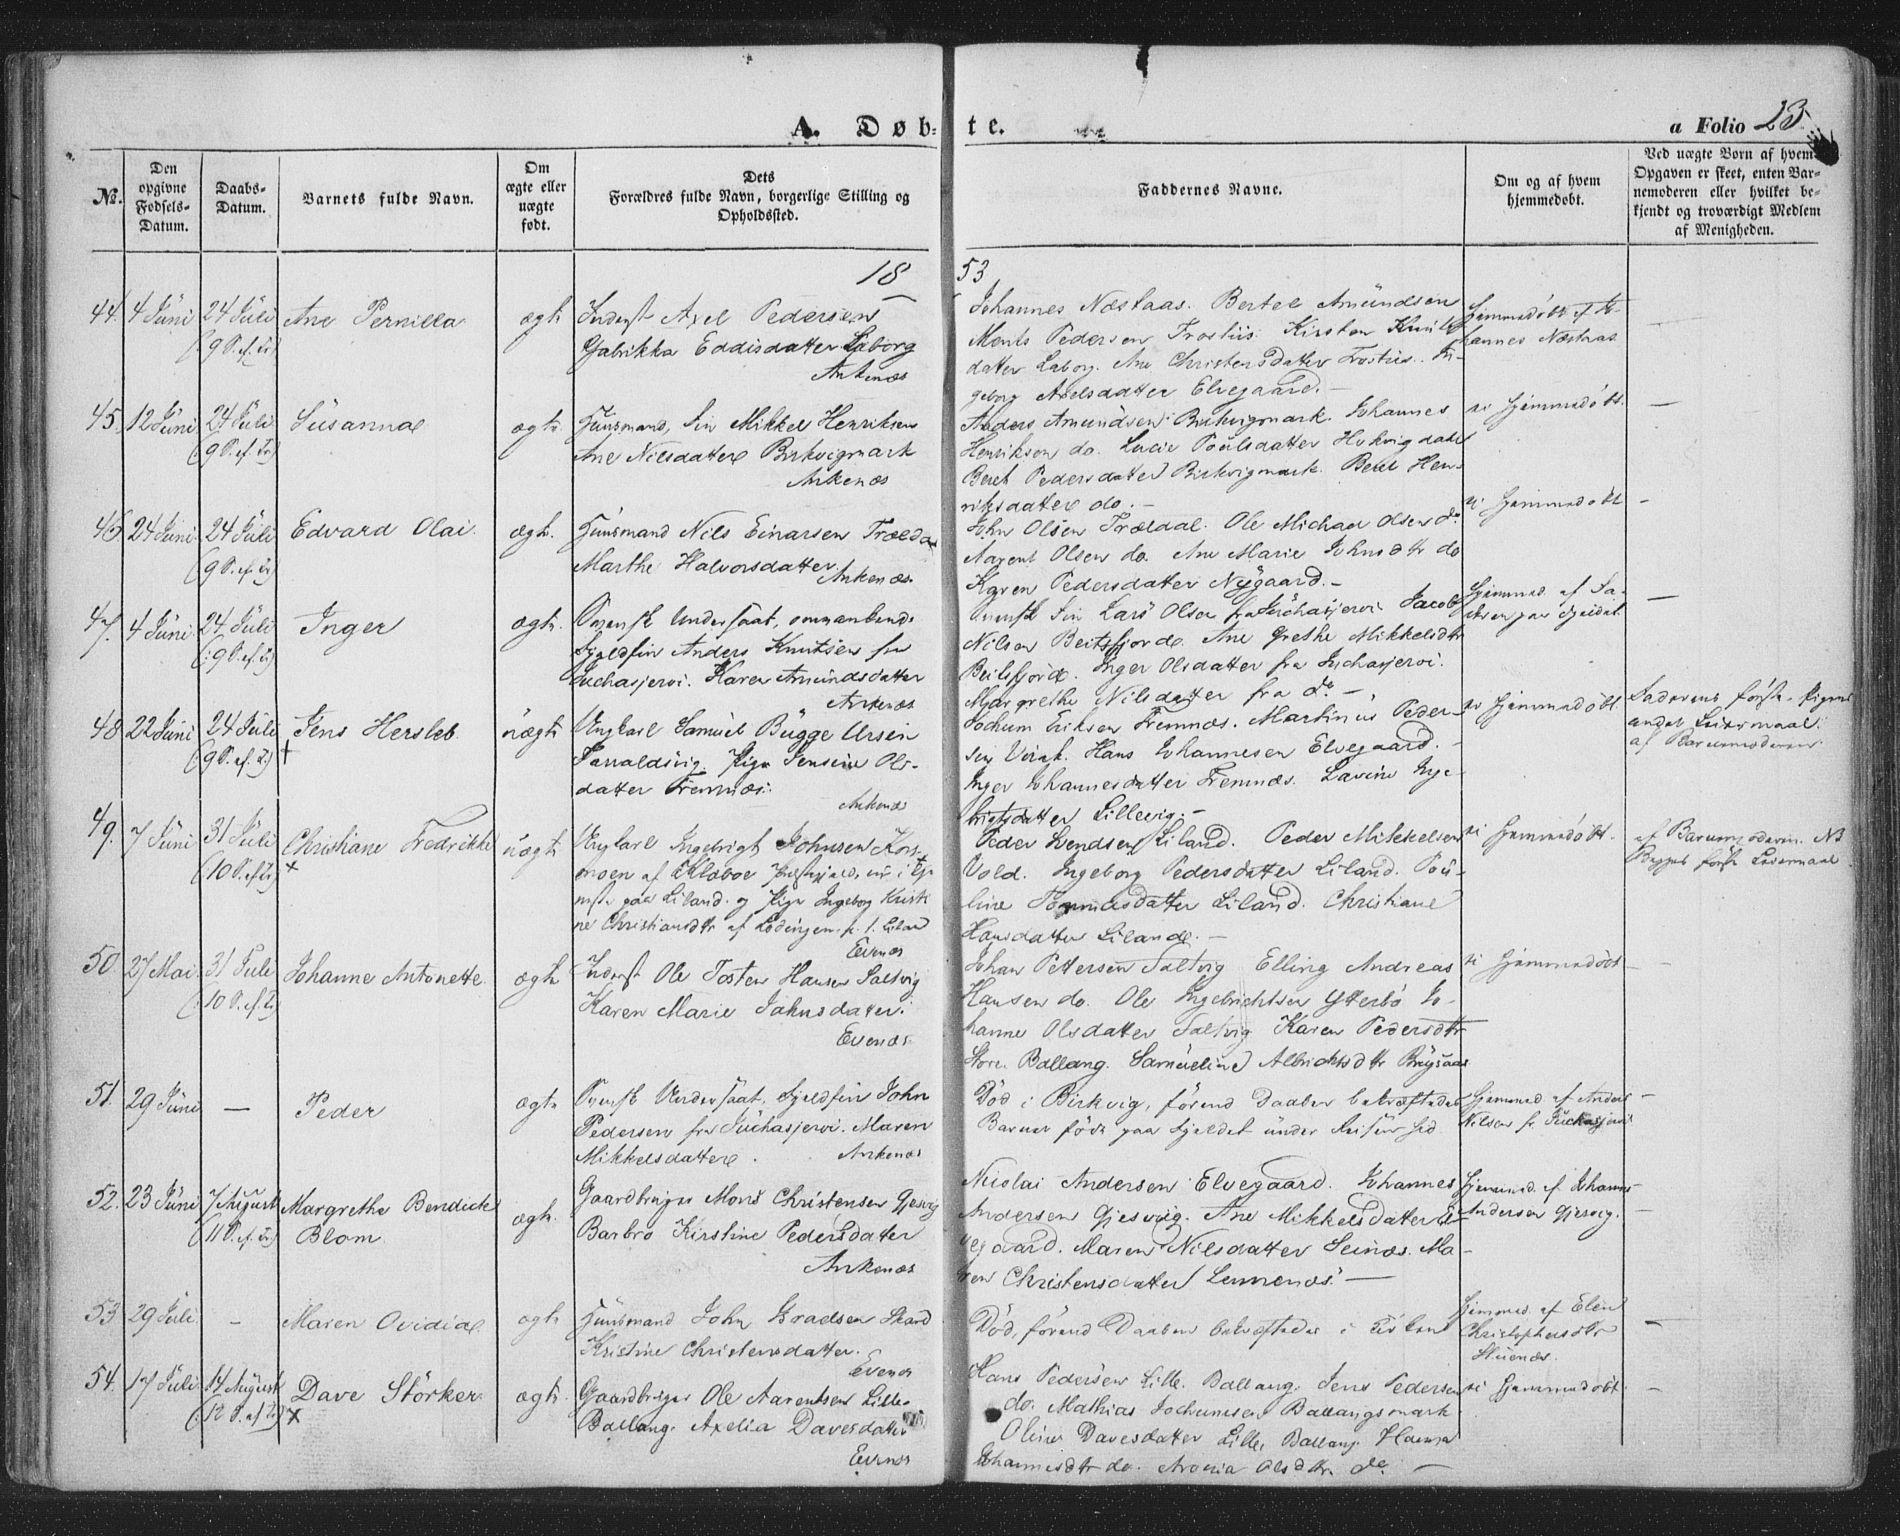 A. Døb-
te.
a Folio 23
No.
Den opgivne Fødsels-Datum.
Daabs-Datum.
Barnets fulde Navn.
Om ægte eller uægte født.
Dets Forældres fulde Navn, borgerlige Stilling og Opholdssted.
Faddernes Navne.
Om og af hvem hjemmedøbt.
Ved uægte Børn af hvem Opgaven er skeet, enten Barnemoderen eller hvilket bekjendt og troværdigt Medlem af Menigheden.
1853
44. 4 Juni 24 Juli (9 S. ef. Tr) Ane Pernilla ægte
Inderst Axel Pedersen
Gabrikka Eddisdatter Laborg
Ankenæs
Johannes Næstaas. Bertel Amundsen
Monts Pedersen Trostiis. Kirsten Knuts
datter Laborg. Ane Christensdatter Trostiis. In-
geborg Axelsdatter Elvegaard. –
Hjemmedøbt af Jo-
hannes Næstaas
45. 12 Juni 24 Juli (9 S. ef. Tr) Susanna ægte
Huusmand, Fin Mikkel Henriksen
Ane Nilsdatter Birkvigmark
Ankenæs
Anders Amundsen Birkvigmark. Johannes
Henriksen do. Lucie Poulsdatter
Beret Pedersdatter Birkvigmark. Beret Hen-
riksdatter do. –
ei Hjemmedøbt. –
46 24 Juni 24 Juli (9 S. ef. Tr) Edvard Olai ægte.
Huusmand Nils Einarsen Trældal
Marthe Halvorsdatter
Ankenæs.
John Olsen Trældal. Ole Michael Olsen do
Aarent Olsen do. Ane Marie Johnsdtr do
Karen Pedersdatter Nygaard. –
ei Hjemmedøbt –
47. 4 Juni 24 Juli (9 S. ef. Tr) Inger ægte.
Svensk Undersaat, omvankende
Fjeldfin Anders Knutsen fra
Juchasjervi. Karen Amundsdatter
Ankenæs
Svensk Fin Lars Olsen fra Juchasjervi Jacob
Nilsen Beitsfjord. Ane Grethe Mikkelsdtr
Beitsfjord. Inger Olsdatter fra Juchasjervi.
Margrethe Nilsdatter fra do –
Hjemmed. af
paa Fjeldet –
48 22 Juni 24 Juli (9 S. ef. Tr) Jens Hersleb uægte
Ungkarl Samuel Bugge Ursin
Haraldsvig. Pige Jensine Ols-
datter Fremnæs.
Ankenæs
Jochum Eriksen Fremnæs. Martinus Peder-
sen Virak. Hans Johannesen Elvegaard. –
Inger Johannesdatter Fremnæs. Lavine Inge-
brigtsdatter Lillevig. –
ei Hjemmedøbt
Faderens første. Pigens
andet Leiermaal.
af Barnemoderen.
49. 7 Juni 31 Juli (10 S. ef. Tr) Christiane Fredrikke uægte
Ungkarl Ingebrigt Johnsen Kors-
moen af Klæboe Præstegjeld, nu i Tje-
neste paa Liland. og Pige Ingeborg Kristi
ne Christiansdtr af Lødingen. p. t. Liland
Evenæs
Peder Svendsen Liland. Peder Mikkelsen
Vold. Ingeborg Pedersdatter Liland. Pou-
line Tommasdatter Liland. Christiane
Hansdatter Liland. –
ei Hjemmedøbt.
af Barnemoderen. NB
Begges første Leiermaal
50 27 Mai 31 Juli (10 S. ef. Tr) Johanne Antonette ægte
Inderst Ole Tosten Hansen Saltvig
Karen Marie Johnsdatter.
Evenæs
Johan Pettersen Saltvig Elling Andreas
Hansen do. Ole Ingebrichtsen Ytterbø Jo-
hanne Olsdatter Saltvig Karen Pedersdtr
Store Ballang. Samueline Albrichtsdtr
ei Hjemmedøbt –
51. 29 Juni – Peder ægte
Svensk Undersaat. Fjeldfin John
Pedersen fra Juchasjervi. Maren
Mikkelsdatter.
Ankenæs
Død i Birkvig, førend Daaben bekræftedes
Barnet født paa Fjeldet under Reisen hid
Hjemmed. af Anders
Nilsen fr. Juchasjervi –
52. 23 Juni 7 August (11 S. ef. Tr) Margrethe Bendicte
Blom ægte.
Gaardbruger Mons Christensen Gjesvig
Barbro Kirstine Pedersdatter
Ankenæs
Nicolai Andersen Elvegaard. Johannes
Andersen Gjesvig. Ane Mikkelsdatter El-
vegaard. Maren Nilsdatter Seinæs. Ma-
ren Christensdatter Lemenæs –
Hjemmed. af Johannes
Andersen Gjesvig. –
53 29 Juli – Maren Ovidia ægte
Huusmand John Skard
Kristine Christensdatter.
Evenæs
Død, førend Daaben bekræftedes i Kirken
Hjemmed. af Elen
Christophersdtr
–
54. 17 Juli 14 August (12 S. ef. Tr) Dave Størker ægte.
Gaardbruger Ole Aarentsen Lille-
Ballang. Axelia Davesdatter
Evenæs
Hans Pedersen Lille Ballang. Jens Pedersen
do. Mathias Jochumsen Ballangsmark
Oline Davesdatter Lille Ballang Hanna
Johannesdtr do. Olsdtr. do –
ei Hjemmedøbt –